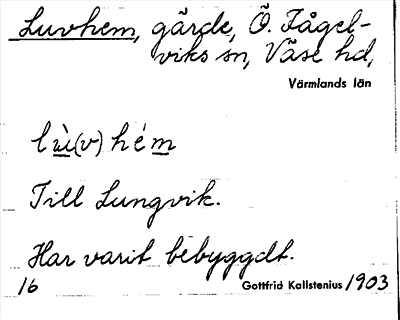 Luvhem, gärde, Ö. Fågel-
viks sn, Väse hd,
Värmlands län
lù̬(v) hém
Till Lungvik.
Har varit bebyggdt.
16 Gottfrid Kallstenius 1903